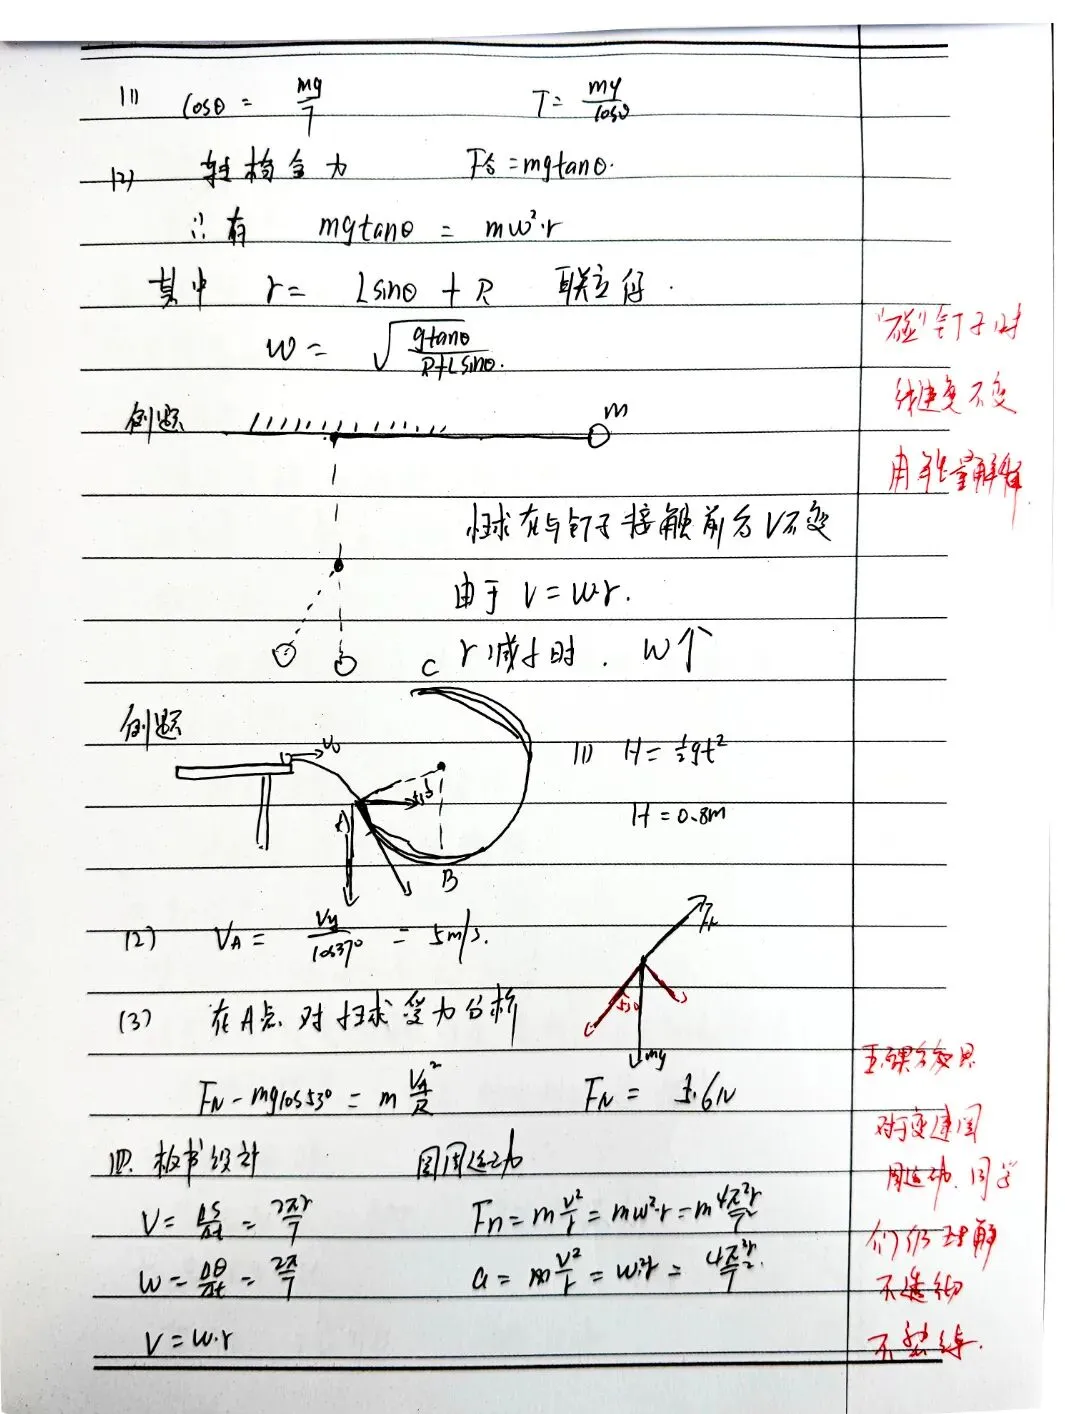 (1) cosθ = mg/T T = mg/cosθ
(2) 转构合力 F合 = mgtanθ.
∴有 mgtanθ = mω²·r
其中 r = Lsinθ + R 联立得.
ω = √(gtanθ/(R+Lsinθ)).
"碰"钉子时
线速度不变
用能量解释
例题 m
小球在与钉子接触前后V不变
由于 V = ω·r.
r减小时. ω个
例题 C
V₀
A
B
(1) H = ½gt²
H = 0.8m
(2) V_A = Vy/cos37° = 5m/s.
(3) 在A点对小球受力分析
F_N
53°
mg
F_N - mgcos53° = m V_A²/R F_N = 1.6N
四. 板书设计 圆周运动
V = ΔS/Δt = 2πr/T Fn = m v²/r = mω²·r = m 4π²r/T²
ω = Δθ/Δt = 2π/T a = m v²/r = ω²r = 4π²r/T².
V = ω·r
对于变速圆
周运动. 同学
们仍理解
不透彻
不熟练.